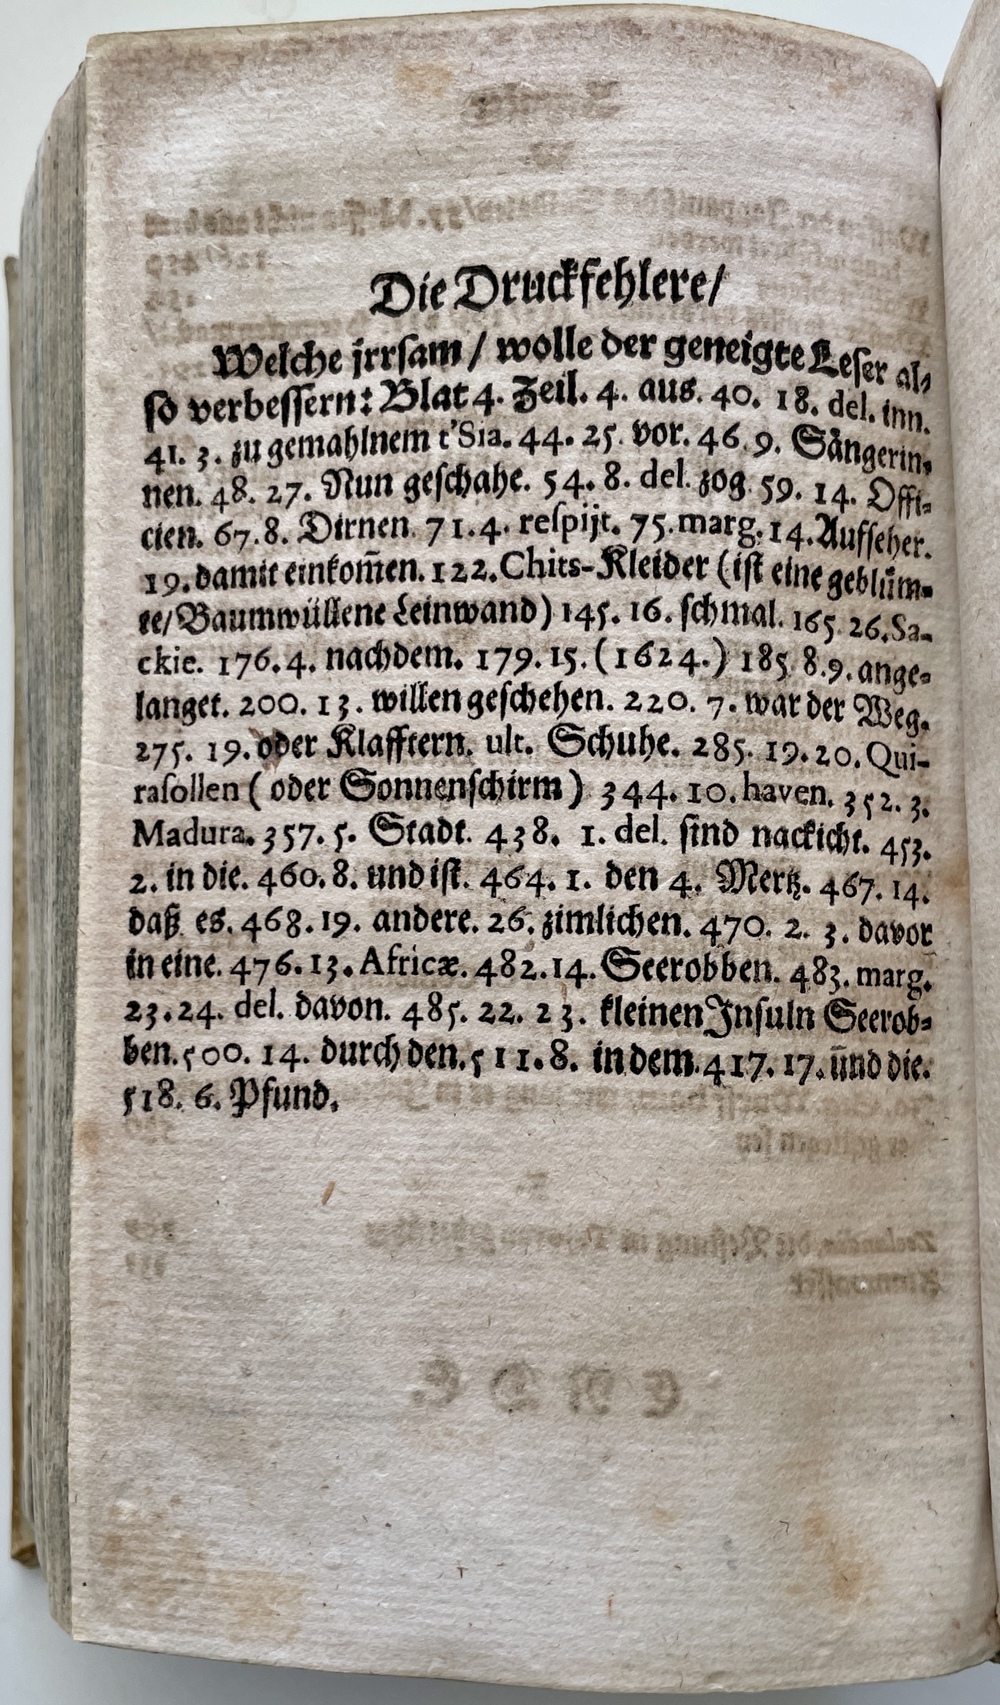 Die Druckfehlere/
Welche jrrsam / wolle der geneigte Leser al⸗
so verbessern: Blat 4. Zeil. 4. aus. 40. 18. del. inn.
41. 3. zu gemahlnem t'Sia. 44. 25. vor. 46. 9. Sångerin⸗
nen. 48. 27. Nun geschahe. 54. 8. del. zog. 59. 14. Offi⸗
cien. 67. 8. Dirnen. 71. 4. respijt. 75. marg. 14. Aufseher.
19. damit einkom̃en. 122. Chits-Kleider (ist eine geblům⸗
te/ Baumwüllene Leinwand) 145. 16. schmal. 165. 26. Sa-
ckie. 176. 4. nachdem. 179. 15. (1624.) 185. 8. 9. ange⸗
langet. 200. 13. willen geschehen. 220. 7. war der Weg.
275. 19. oder Klafftern. ult. Schuhe. 285. 19. 20. Qui-
rasollen ( oder Sonnenschirm ) 344. 10. haven. 352. 3.
Madura. 357. 5. Stadt. 438. 1. del. sind nackicht. 453.
2. in die. 460. 8. und ist. 464. 1. den 4. Mertz. 467. 14.
daß es. 468. 19. andere. 26. zimlichen. 470. 2. 3. davor
in eine. 476. 13. Africæ. 482. 14. Seerobben. 483. marg.
23. 24. del. davon. 485. 22. 23. kleinen Insuln Seerob⸗
ben. 500. 14. durch den. 511. 8. in dem. 417. 17. ũnd die.
518. 6. Pfund.